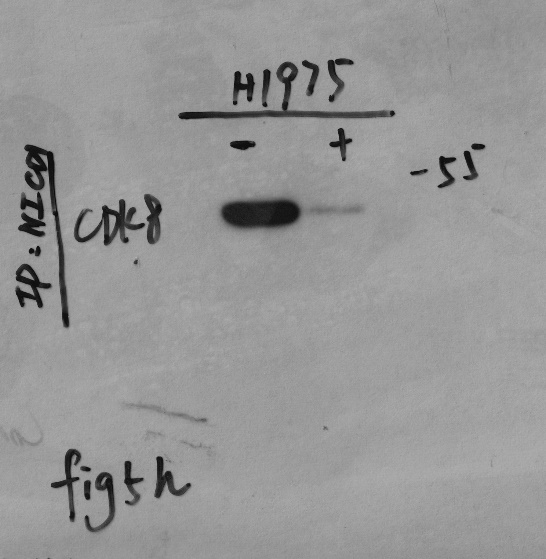 H1975
- +
-55
IP: NICD
CDK8
fig5h